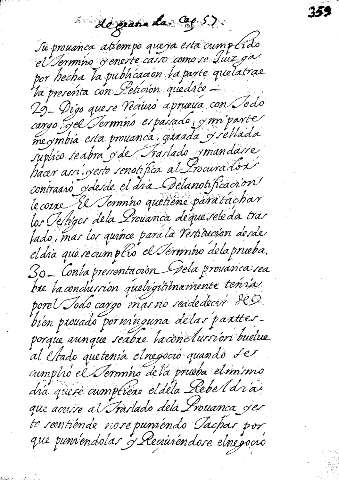 de granada. Cap. 57. 359
su prouança a tiempo que ya esta cumplido
el Termino y en este caso como se Juiz ga
por hecha la publicacion. la parte que la trae
la presenta con Peticion que dice —
29 — Digo que se reciuio a prueua con Todo
cargo, y el Termino es pasado, y mi parte
me ymbia esta prouança, çerrada y sellada
suplico se abra y de Traslado, y mandasse
hacer assi, y esto se notifica al Procurador
contrario y desde el dia De la notificacion
le corre El Termino que tiene para tachar
los Testigos de la Prouança de que se le da tras
lado, mas los quince para la restitucion desde
el dia que se cumplio el Termino de la prueba.
30 — Con la presentacion De la prouança se a
bre la conclussion que legitimamente tenia
por el Todo cargo mas no se a de decir de
bien prouado por ninguna de las parttes
porque aunque se abre la conclussion buelue
al Estado que tenia el negocio quando se
cumplio el Termino de la prueba el mismo
dia que se cumpliere el de la Rebeldia
que acusse al Traslado de la Prouança y es
to se entiende no se puniendo Tachas por
que puniendolas y Requiriendose el negocio